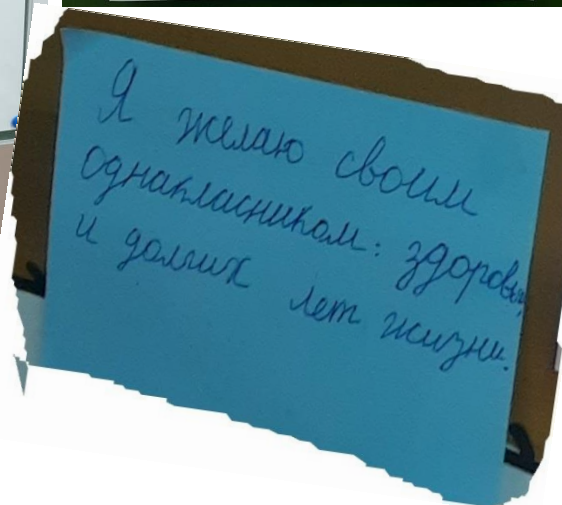 Я желаю своим
однакласником: здоровья,
и долгих лет жизни.